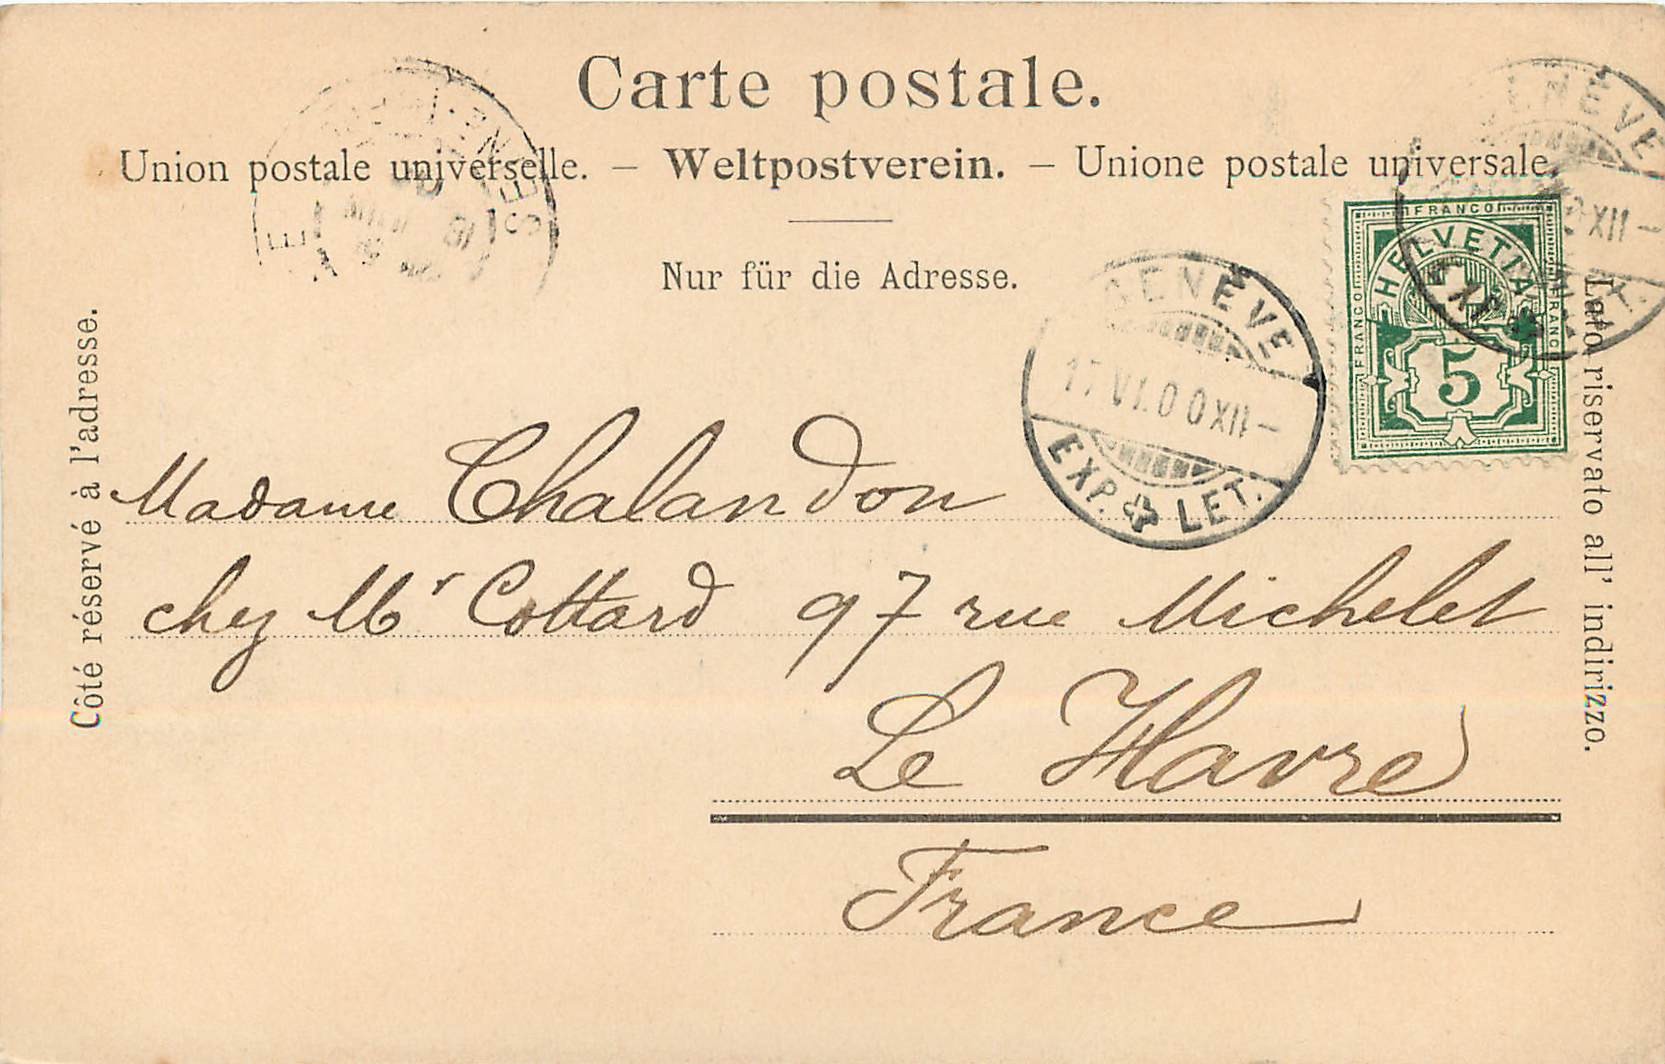 Carte postale.
Union postale universelle. — Weltpostverein. — Unione postale universale.
Nur für die Adresse.
Côté réservé à l'adresse.
Lato riservato all' indirizzo.
FRANCO
HELVETIA
FRANCO
FRANCO
5
GENÈVE
XII —
EXP. LET.
GENÈVE
17 VI.00 XII —
EXP. LET.
Madame Chalandon
chez Mr Cottard 97 rue Michelet
Le Havre
France